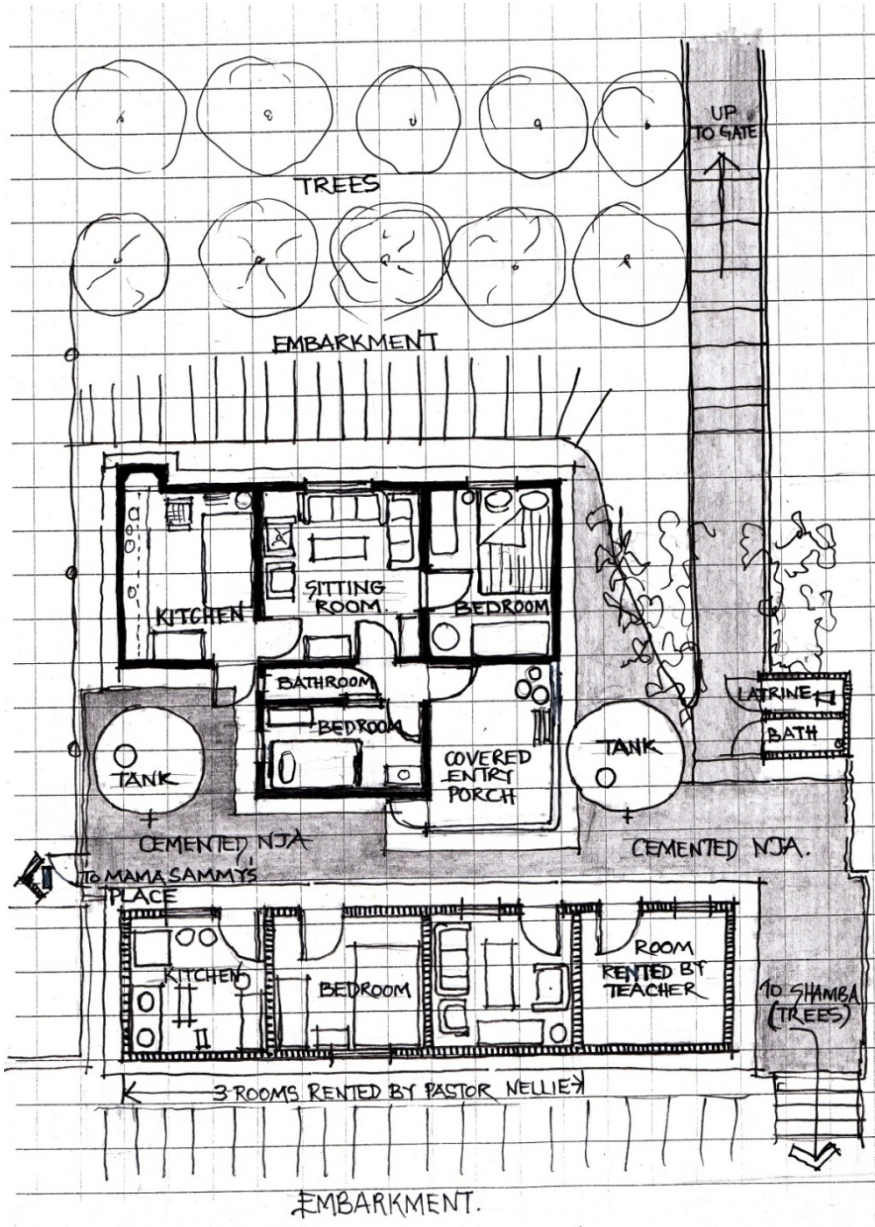 UP
TO GATE
TREES
EMBARKMENT
SITTING
ROOM.
KITCHEN
BEDROOM
BATHROOM
BEDROOM
LATRINE
BATH
TANK
COVERED
ENTRY
PORCH
TANK
CEMENTED NJA
CEMENTED NJA.
TO MAMA SAMMY'S
PLACE
KITCHEN
BEDROOM
ROOM
RENTED BY
TEACHER
TO SHAMBA
(TREES)
3 ROOMS RENTED BY PASTOR NELLIE
EMBARKMENT.